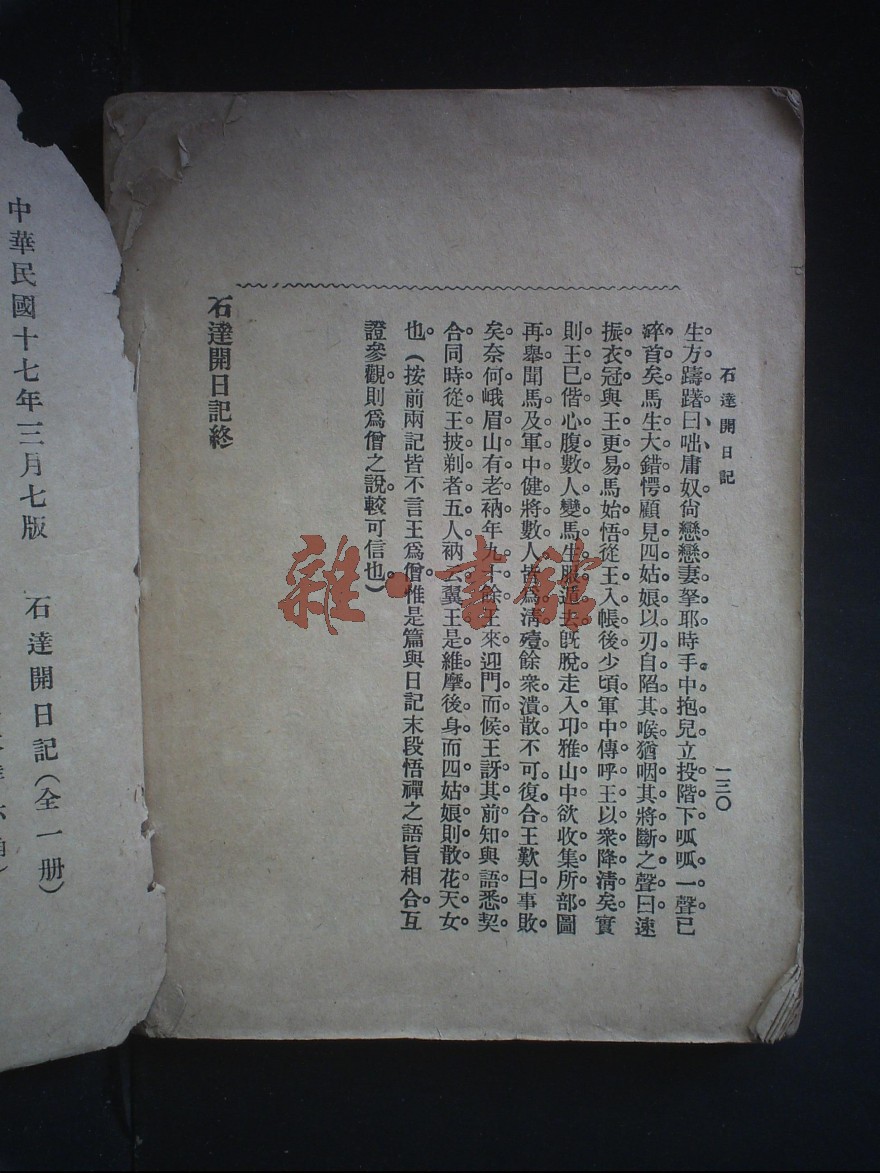 石達開日記
一三〇
生方躊躇曰咄庸奴尙戀戀妻孥耶時手中抱兒立投階下呱呱一聲已
碎首矣馬生大錯愕顧見四姑娘以刃自陷其喉猶咽其將斷之聲曰速
振衣冠與王更易馬始悟從王入帳後少頃軍中傳呼王以衆降淸矣實
則王已偕心腹數人變馬生服遁去旣脫走入邛雅山中欲收集所部圖
再舉聞馬及軍中健將數人皆爲淸殪餘衆潰散不可復合王歎曰事敗
矣奈何峨眉山有老衲年九十餘王來迎門而候王訝其前知與語悉契
合同時從王披剃者五人衲云翼王是維摩後身而四姑娘則散花天女
也(按前兩記皆不言王爲僧惟是篇與日記末段悟禪之語旨相合互
證參觀則爲僧之說較可信也)
石達開日記終
中華民國十七年三月七版
石達開日記(全一册)
雜·書館